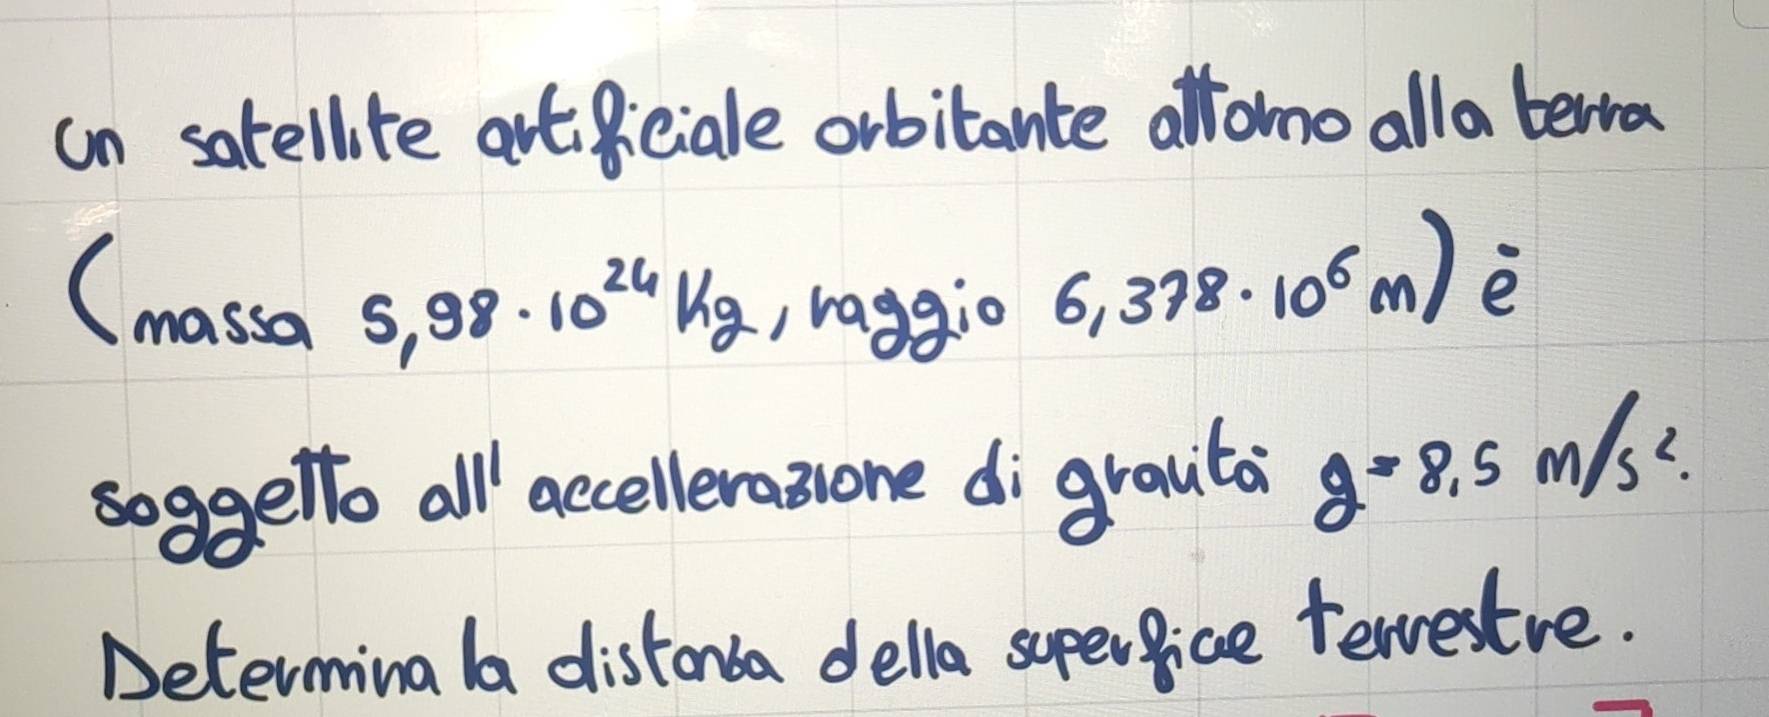 un satellite artificiale orbitante attorno alla terra
(massa 5,98 · 10²⁴ Kg, raggio 6,378 · 10⁶ m) è
soggetto all' accellerazione di gravità g = 8,5 m/s².
Determina la distanza della superficie terrestre.